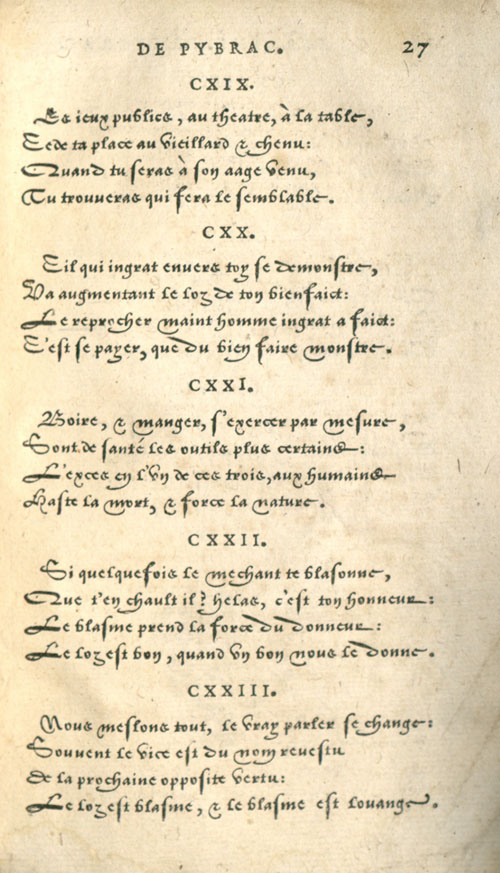 DE PYBRAC. 27
CXIX.
Es ieux publics, au theatre, à la table,
Cede ta place au vieillard & chenu:
Quand tu seras à son aage venu,
Tu trouueras qui fera le semblable.
CXX.
Cil qui ingrat enuers toy se demonstre,
Va augmentant le loz de ton bienfaict:
Le reprocher maint homme ingrat a faict:
C'est se payer, que du bien faire monstre.
CXXI.
Boire, & manger, s'exercer par mesure,
Sont de santé les outils plus certains:
L'exces en l'vn de ces trois, aux humains
Haste la mort, & force la nature.
CXXII.
Si quelquefois le mechant te blasonne,
Que t'en chault il? helas, c'est ton honneur:
Le blasme prend la force du donneur:
Le loz est bon, quand vn bon nous le donne.
CXXIII.
Nous meslons tout, le vray parler se change:
Souuent le vice est du nom reuestu
De la prochaine opposite vertu:
Le loz est blasme, & le blasme est louange.